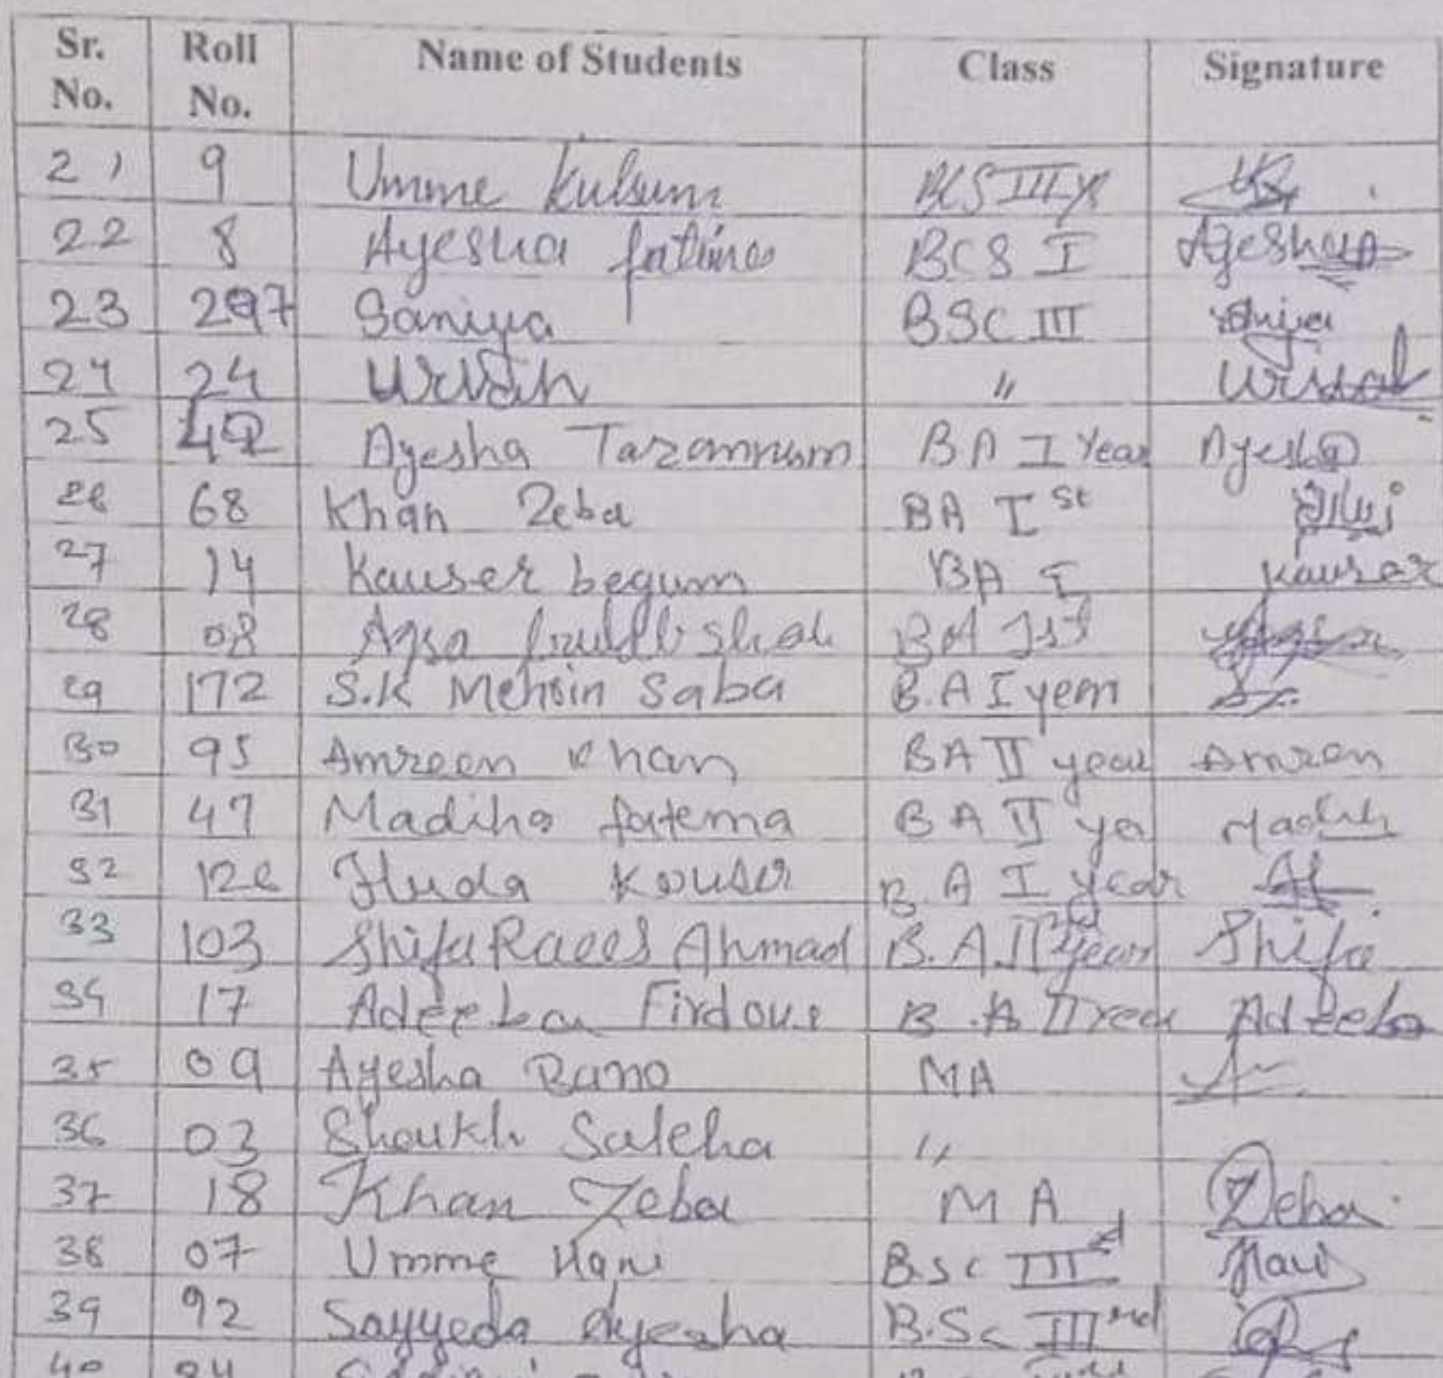 Sr. No. Roll No. Name of Students Class Signature
21 9 Umme Kulsum BCS III yr
22 8 Ayesha fatima BCS I Ayesha
23 297 Saniya BSC III
24 24 "
25 42 Ayesha Tarannum BA I Year Ayesha
26 68 Khan Zeba BA I st
27 14 Kauser begum BA I Kausar
28 08 Aqsa BA 1st
29 172 S.K Mehsin Saba B.A I yem
30 95 Amreen Khan BA II year Amren
31 47 Madiha fatema BA II ye
32 Huda Kouser B.A I year
33 103 Shifa Raees Ahmad B.A II year Shifa
34 17 Adeeba Firdous B.A II Adeeba
35 09 Ayesha Bano MA
36 03 Shaukh Saleha "
37 18 Khan Zeba MA Zeba
38 07 Umme Hani B.sc III Hani
39 92 Sayyeda Ayesha B.Sc III rd
40